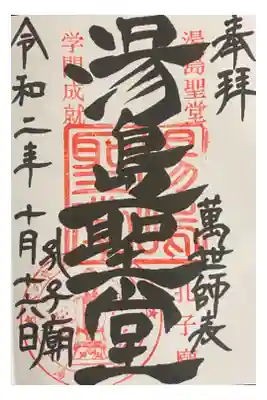 奉拝
萬世師表
湯島聖堂
孔子廟
令和二年十月十六日
湯島聖堂
学問成就